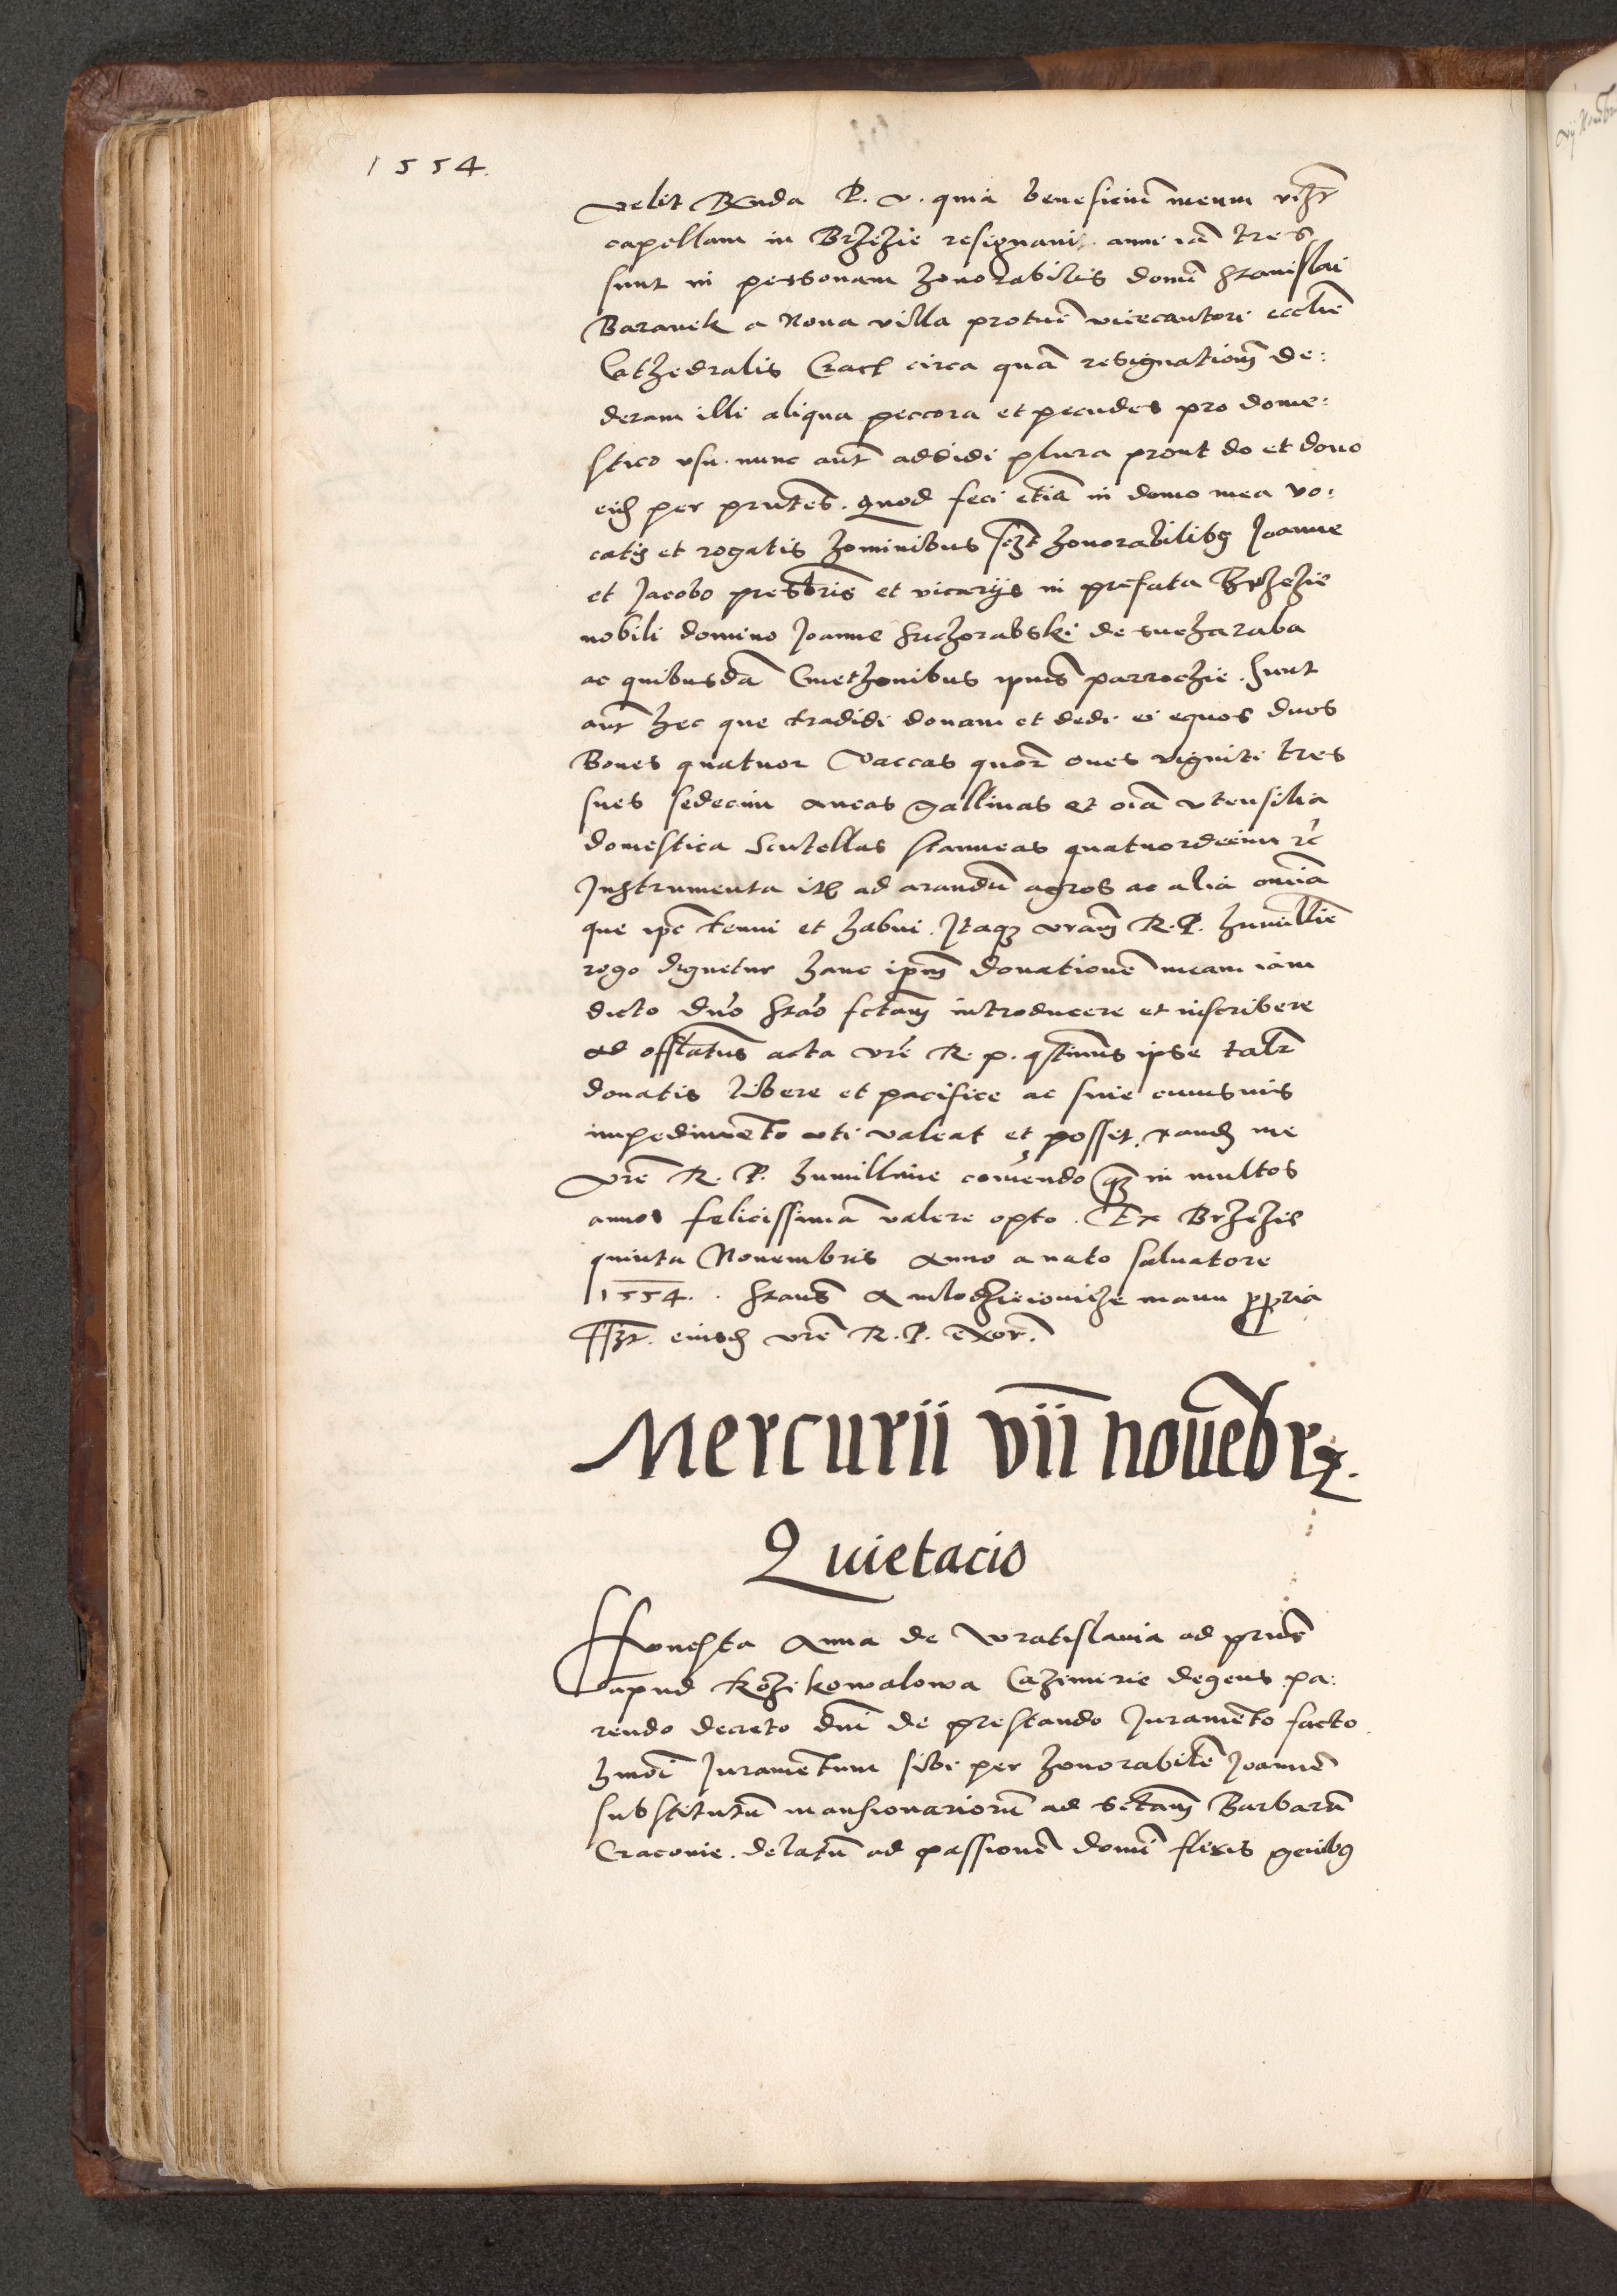 1554.
velit Rnda P. v. quia beneficiũ meum vȝt
capellam in Brzezie resignavi. anni iã tres
sunt in personam honorabilis domĩ Stanislai
Baranek a Nova villa protũc vicecantori ecclie
Cathedralis Crac̃ circa quã resignationẽ de:
deram illi aliqua peccora et pecudes pro dome:
stico usu. nunc aut̃ addidi plura prout do et dono
eidȝ per pn̄tes. quod feci etiã in domo mea vo:
catis et rogatis hominibus sczt honorabilibȝ Joanne
et Jacobo presbr̃is et vicarijs in prefata Brzezie
nobili domino Joanne Suchorabski de sucharaba
ac quibusdã Cmethonibus ipius parrochie. Sunt
aut̃ hec que tradidi donavi et dedi ei equos duos
Boues quatuor Vaccas quor̃ oues viginti tres
sues sedecim ancas gallinas et oĩa vtensilia
domestica Scutellas stanneas quatuordecim rc̃
Instrumenta itẽ ad arandũ agros ac alia omĩa
que ipe tenui et habui. Itaqȝ vram̃ R. P. humillie
rogo dignetur hanc ipm̃ donationẽ meam iam
dicto dno Stao sctam introducere et inscribere
ad offlatus acta vre R. p. qtinus ipse talr̃
donatis libere et pacifice ac sine cuiusuis
impedimẽto uti valeat et posset. tandȝ me
vre R. P. humillime com̃endo qȝ in multos
annos felicissimã valere opto. Ex Brzezie
quinta Novembris Anno a nato salvatore
1554. . Stans̃ A mlodzieiovicze manu ppria
ssȝt. eiusdȝ vre R. P. exor̃.
Mercurii vii nouẽbrȝ.
Quietacio
Honesta Anna de Wratislavia ad pn̄s
apud Kozikowalowa Cazimirie degens pa:
rendo decreto dnĩ de prestando Juramẽto facto
hm̃oi Juramẽtum sibi per honorabilẽ Joannẽ
substitutũ mansionariorũ ad sctam̃ Barbarã
Cracovie. delatũ ad passionẽ domĩ flexis genibȝ